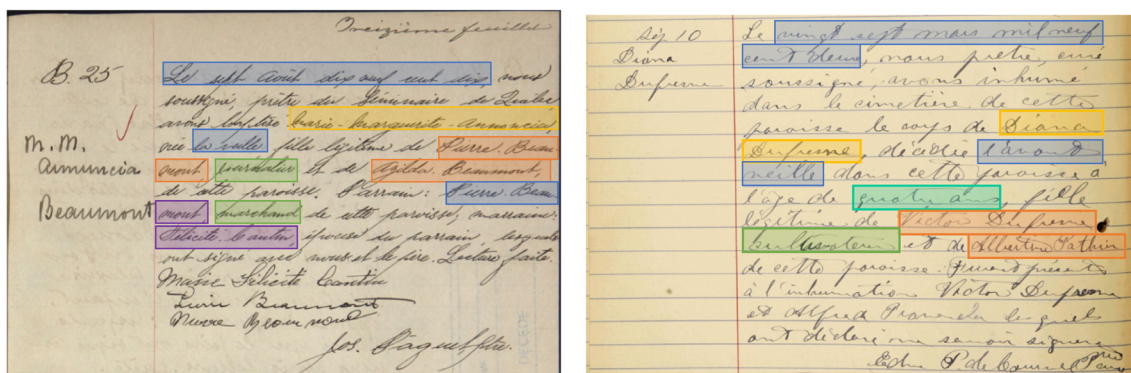 Onzième feuillet
B. 25
M. M.
Annuncia
Beaumont
Le sept août dix neuf cent six, nous
soussigné, prêtre du Séminaire de Québec
avons baptisé Marie-Marguerite-Annoncia,
née la veille, fille légitime de Pierre Beau-
mont, et de Azilda Beaumont,
de cette paroisse. Parrain: Pierre Beau-
mont marchand de cette paroisse, marraine:
Félicité Cantin, épouse du parrain, lesquels
ont signé avec nous et le père. Lecture faite.
Marie Félicité Cantin
Beaumont
Pierre Beaumont
Jos. Paquet, ptre.
Sép 10
Diana
Dufresne
Le vingt sept mars mil neuf
cent deux, nous prêtre, curé
soussigné, avons inhumé
dans le cimetière de cette
paroisse le corps de Diana
Dufresne, décédée l'avant
veille dans cette paroisse à
l'âge de quatre ans, fille
légitime de Victor Dufresne
cultivateur et de Albertine
de cette paroisse. Furent présents
à l'inhumation Victor Dufresne
et Alfred lesquels
ont déclaré ne savoir signer